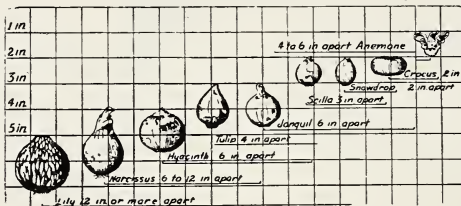 1 in
2 in
3 in
4 in
5 in
4 to 6 in apart Anemone
Crocus, 2 in
Snowdrop, 2 in apart
Scilla 3 in apart
Jonquil 6 in apart
Tulip 4 in apart
Hyacinth 6 in apart
Narcissus 6 to 12 in apart
Lily 12 in or more apart